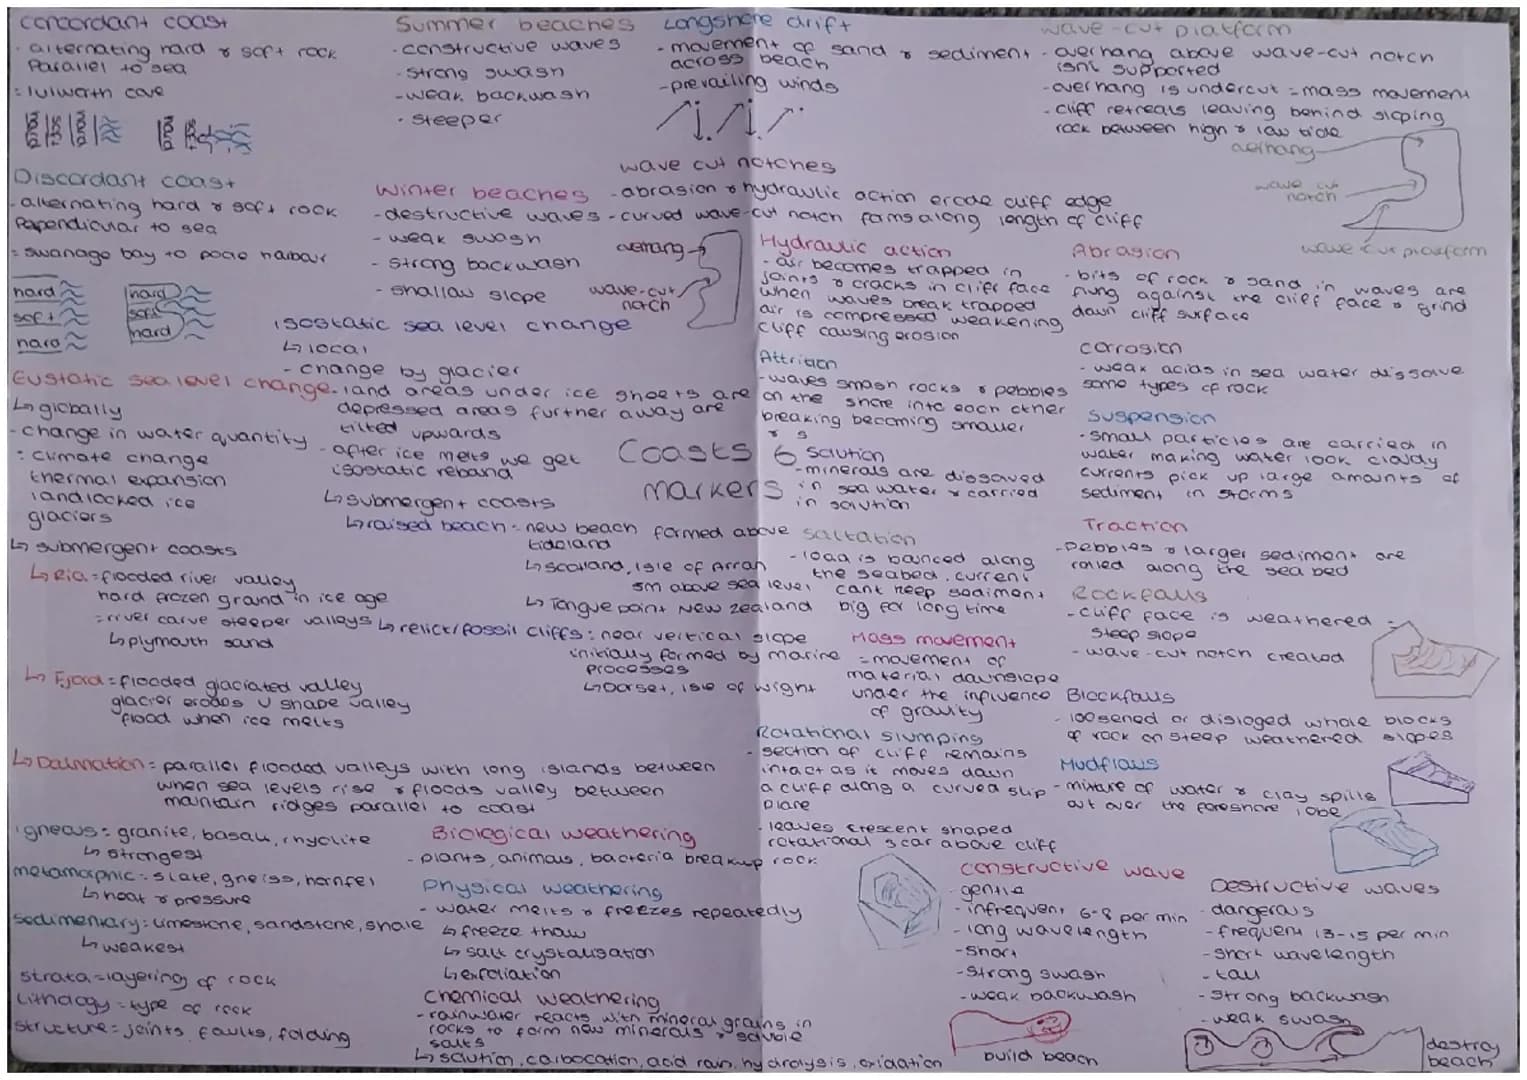 concordant coast
- alternating hard & soft rock
parallel to sea
= lulworth cove
Discordant coast
- alternating hard & soft rock
Perpendicular to sea
= swanage bay to poole harbour
hard
soft
hard
hard
soft
hard
Summer beaches
- constructive waves
- strong swash
- weak backwash
- steeper
Winter beaches
- destructive waves
- weak swash
- strong backwash
- shallow slope
Longshore drift
- movement of sand & sediment
across beach
- prevailing winds
wave cut notches
- abrasion & hydraulic action erode cliff edge
- curved wave-cut notch forms along length of cliff
overhang
wave-cut
notch
wave-cut platform
- overhang above wave-cut notch
isnt supported
- overhang is undercut = mass movement
- cliff retreats leaving behind sloping
rock between high & low tide
overhang
wave cut
notch
wave cut platform
isostatic sea level change
↳ local
- change by glacier
- land areas under ice sheets are
depressed areas further away are
tilted upwards
- after ice melts we get
isostatic rebound
↳ submergent coasts
↳ raised beach = new beach formed above
tideland
↳ scotland, Isle of Arran
5m above sea level
↳ Tongue point New zealand
↳ relict/fossil cliffs: near vertical slope
initially formed by marine
processes
↳ Dorset, isle of wight
Eustatic sea level change
↳ globally
- change in water quantity
: climate change
thermal expansion
landlocked ice
glaciers
↳ submergent coasts
↳ Ria = flooded river valley
hard frozen ground in ice age
= river carve steeper valleys
↳ plymouth sand
↳ Fjord = flooded glaciated valley
glacier erodes U shape valley
flood when ice melts
↳ Dalmation = parallel flooded valleys with long islands between
when sea levels rise & floods valley between
mountain ridges parallel to coast
Coasts 6
markers
Hydraulic action
- air becomes trapped in
joints & cracks in cliff face
when waves break trapped
air is compressed weakening
cliff causing erosion
Abrasion
- bits of rock & sand in waves are
flung against the cliff face & grind
down cliff surface
Attrition
- waves smash rocks & pebbles
on the shore into each other
breaking becoming smaller
& s
corrosion
- weak acids in sea water dissolve
some types of rock
Suspension
- small particles are carried in
water making water look cloudy
currents pick up large amounts of
sediment in storms
solution
- minerals are dissolved
in sea water & carried
in solution
Traction
- Pebbles & larger sediment are
rolled along the sea bed
saltation
- load is bounced along
the seabed. current
cant keep sediment
big for long time
Rockfalls
- cliff face is weathered =
steep slope
- wave-cut notch created
Mass movement
= movement of
material downslope
under the influence
of gravity
Blockfalls
- loosened or disloged whole blocks
of rock on steep weathered slopes
Rotational slumping
- section of cliff remains
intact as it moves down
a cliff along a curved slip
plane
- leaves crescent shaped
rotational scar above cliff
Mudflows
- mixture of water & clay spills
out over the foreshore lobe
igneous = granite, basalt, rhyolite
↳ strongest
metamorphic = slate, gneiss, hornfel
↳ heat & pressure
sedimentary: limestone, sandstone, shale
↳ weakest
strata = layering of rock
Lithology = type of rock
structure = joints, faults, folding
Biological weathering
- plants, animals, bacteria breakup rock
Physical weathering
- water melts & freezes repeatedly
↳ freeze thaw
↳ salt crystalisation
↳ exfoliation
Chemical weathering
- rainwater reacts with mineral grains in
rocks to form new minerals & soluble
salts
↳ solution, carbocation, acid rain, hydrolysis, oxidation
constructive wave
- gentle
- infrequent 6-8 per min
- long wavelength
- short
- strong swash
- weak backwash
build beach
Destructive waves
- dangerous
- frequent 13-15 per min
- short wavelength
- tall
- strong backwash
- weak swash
destroy
beach